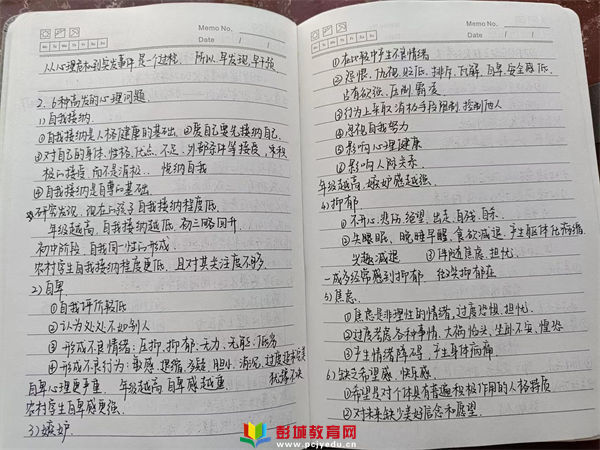 Memo No.
Date / /
从心理危机到突发事件是一个过程. 所以, 早发现, 早干预
2. 6种高发的心理问题.
1) 自我接纳
①自我接纳是人格健康的基础. ②爱自己要先接纳自己.
③对自己的身体、性格、优点、不足、外部条件等接受,
极的接受, 而不是消极. 悦纳自我
④自我接纳是自尊的基础.
研究发现, 现在的孩子自我接纳程度低.
年级越高, 自我接纳越低. 初三略回升
初中阶段, 自我同一性的形成.
农村学生自我接纳程度更低, 且对其关注度不够.
2) 自卑.
①自我评价较低
②认为处处不如别人
③形成不良情绪: 压抑、抑郁、无力、无能、低劣
④形成不良行为: 敏感、退缩、多疑、胆小、消沉、过度追求完美
犹豫不决
自卑心理更严重. 年级越高, 自卑感越重.
农村学生自卑感更强.
3) 嫉妒.
Memo No.
Date / /
①在比较中产生不良情绪
②怨恨、仇视、贬低、排斥、瓦解、自卑、安全感低、
占有欲强、压制、霸凌
③行为上采取消极手段限制、控制他人
④忽视自我努力
⑤影响心理健康
⑥影响人际关系.
年级越高, 嫉妒感越强.
4) 抑郁
①不开心、悲伤、绝望、出走、自残、自杀.
②失眠、晚睡早醒、食欲减退、产生躯体化病痛
兴趣减退 ③伴随焦虑、担忧
一成多经常感到抑郁
5) 焦虑.
①焦虑是非理性的情绪, 过度恐惧、担忧.
②过度考虑各种事情、大祸临头、坐卧不安、惶恐
③产生情绪障碍, 产生身体病痛.
6) 缺乏希望感、快乐感
①希望是对个体具有普遍积极作用的人格特质
②对未来缺少美好信念和愿望.
彭城教育网
www.pcjyedu.cn